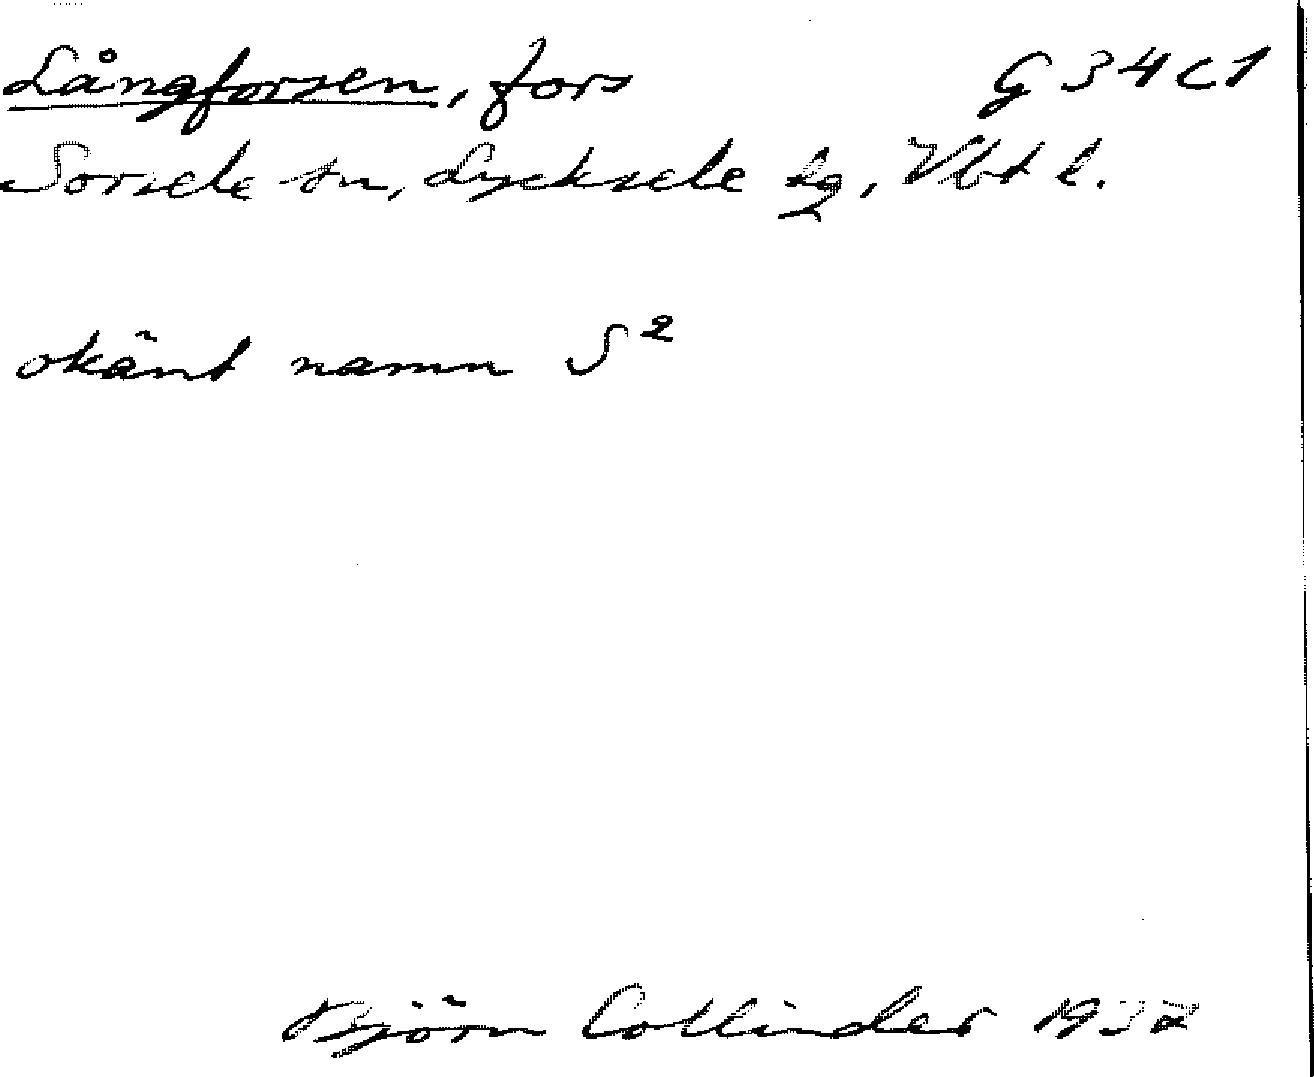 Långforsen, fors G 34 c 1
Sorsele sn, Lycksele lg, Vbt l.
okänt namn S²
Björn Collinder 1937